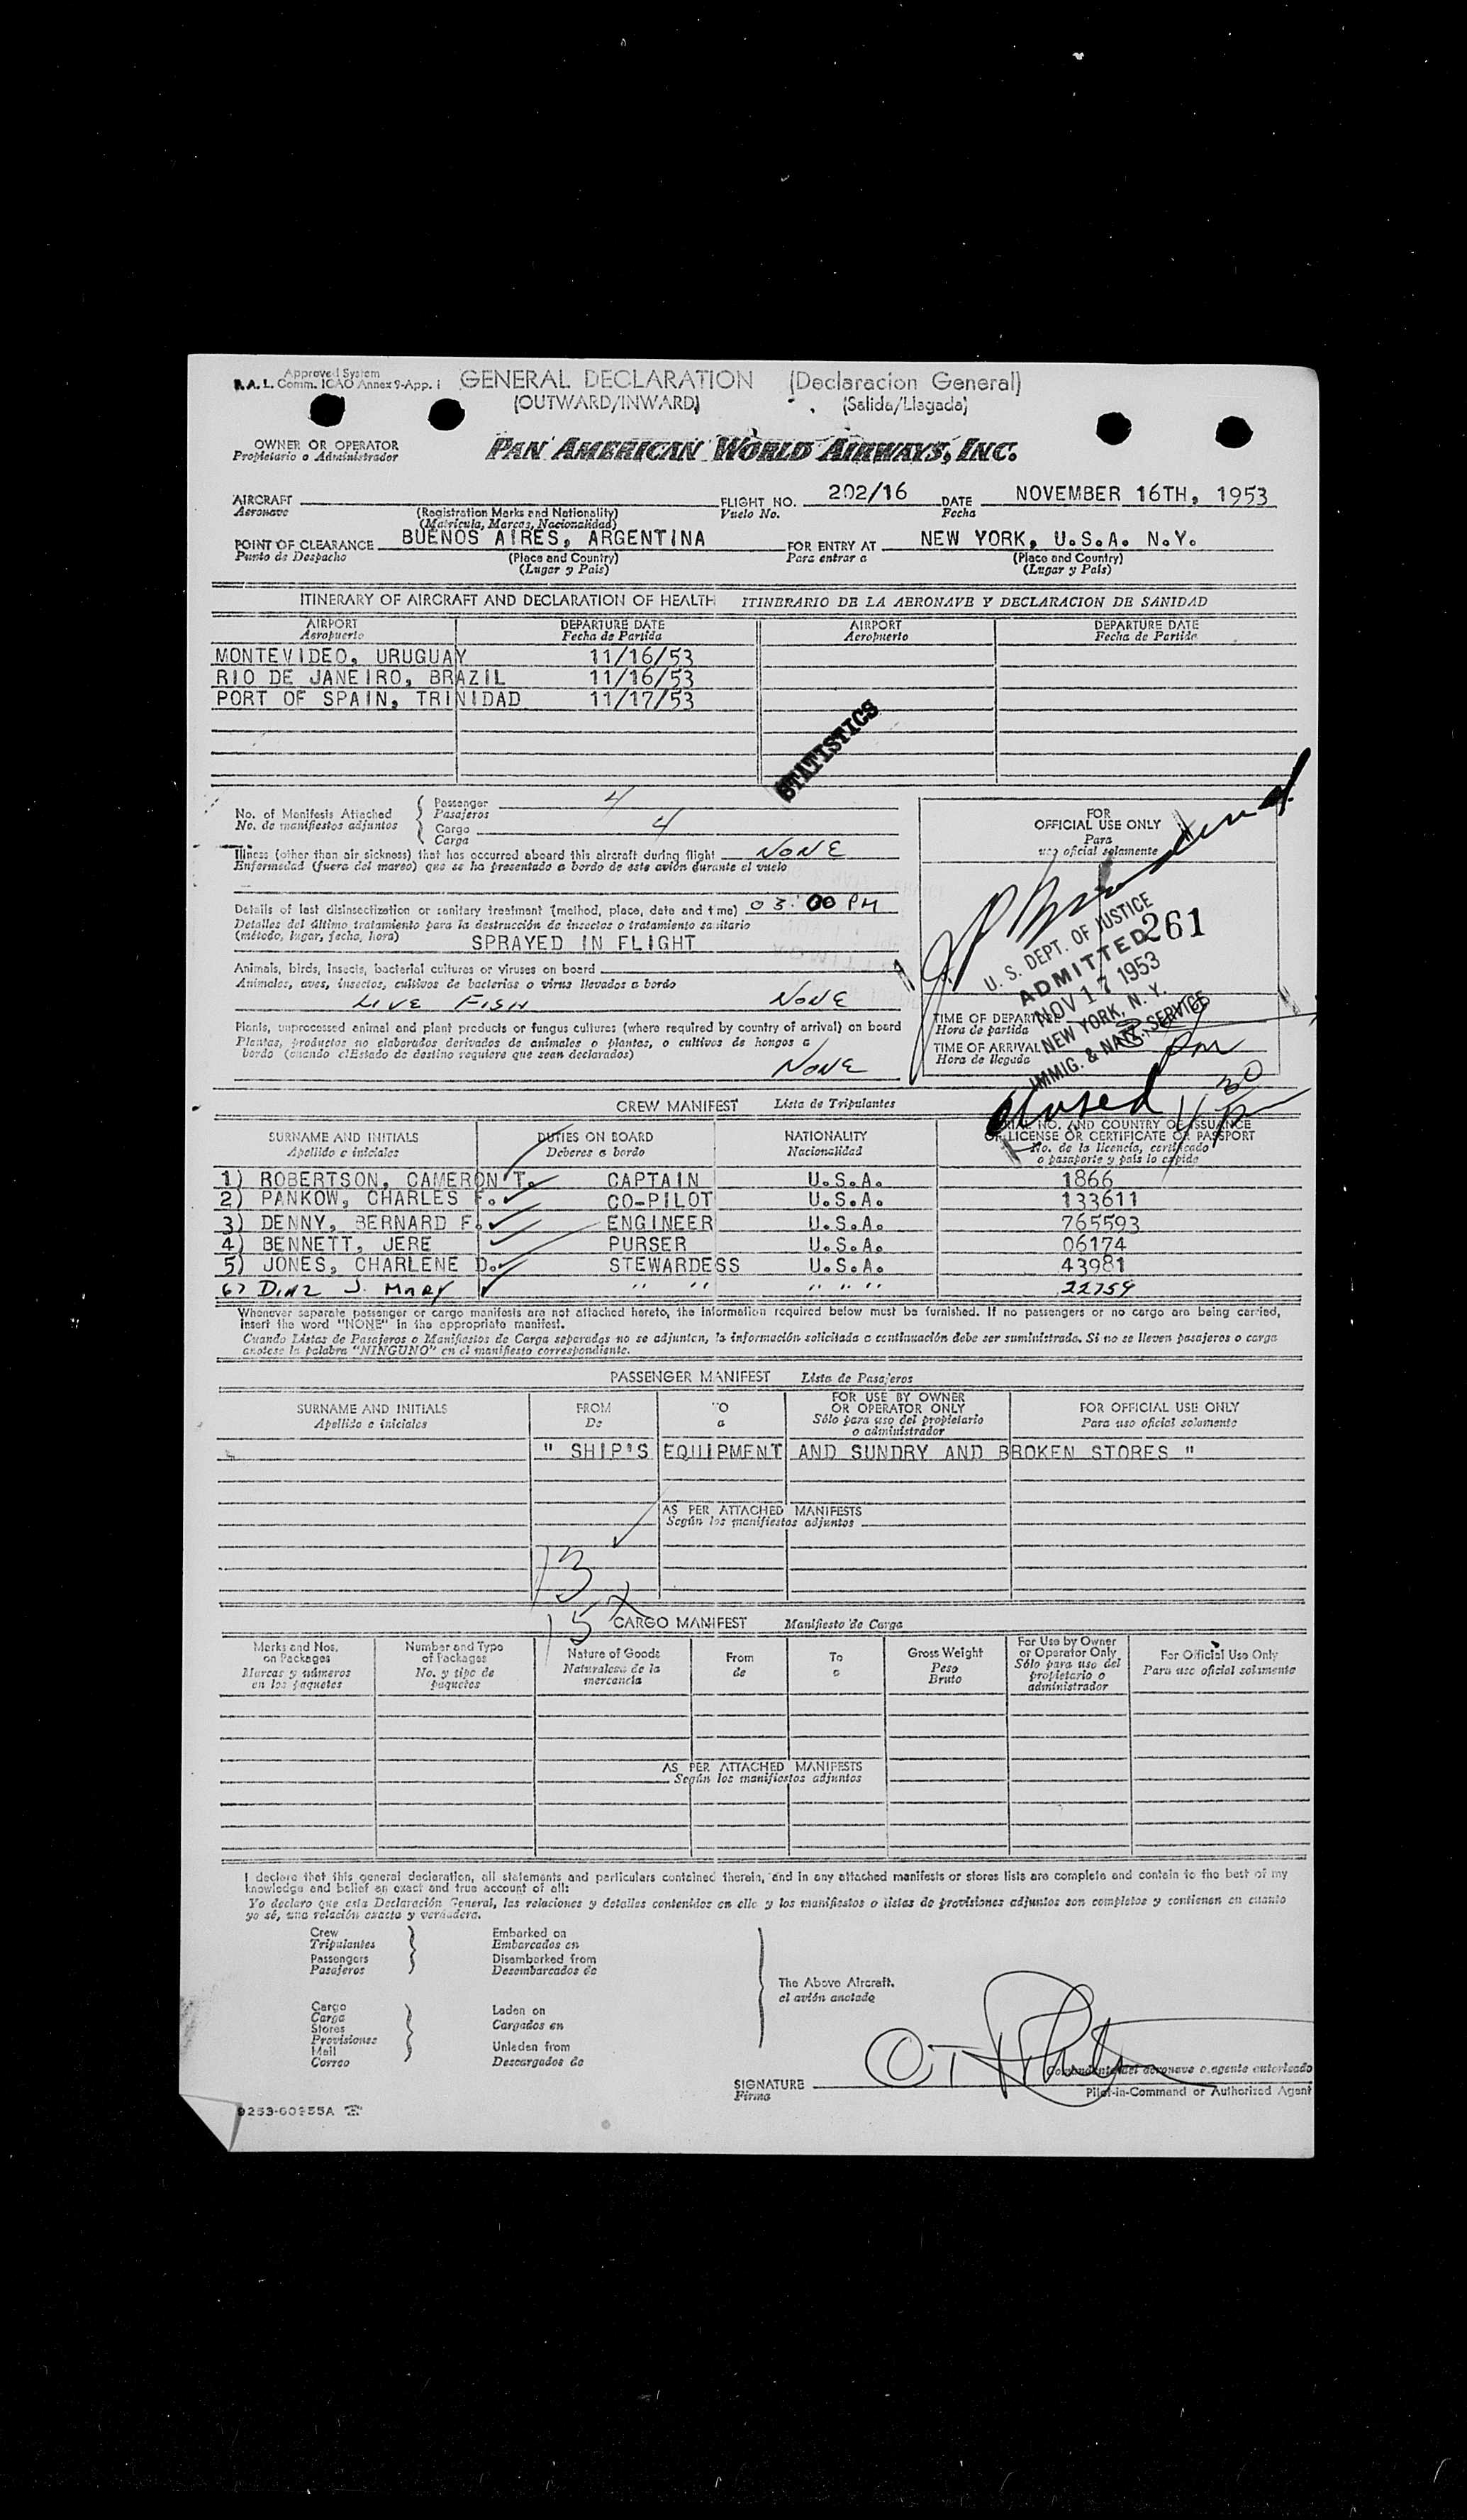 Approved System
F.A.L. Comm. ICAO Annex 9-App. 1
GENERAL DECLARATION (Declaracion General)
(OUTWARD/INWARD) (Salida/Llegada)
OWNER OR OPERATOR
Propietario o Administrador
PAN AMERICAN WORLD AIRWAYS, INC.
AIRCRAFT FLIGHT NO. 202/16 DATE NOVEMBER 16TH, 1953
Aeronave (Registration Marks and Nationality) Vuelo No. Fecha
(Matricula, Marcas, Nacionalidad)
POINT OF CLEARANCE BUENOS AIRES, ARGENTINA FOR ENTRY AT NEW YORK, U.S.A. N.Y.
Punto de Despacho (Place and Country) Para entrar a (Place and Country)
(Lugar y País) (Lugar y País)
ITINERARY OF AIRCRAFT AND DECLARATION OF HEALTH ITINERARIO DE LA AERONAVE Y DECLARACION DE SANIDAD
AIRPORT DEPARTURE DATE AIRPORT DEPARTURE DATE
Aeropuerto Fecha de Partida Aeropuerto Fecha de Partida
MONTEVIDEO, URUGUAY 11/16/53
RIO DE JANEIRO, BRAZIL 11/16/53
PORT OF SPAIN, TRINIDAD 11/17/53
STATISTICS
No. of Manifests Attached Passenger 4
No. de manifiestos adjuntos Pasajeros
Cargo 4
Carga
Illness (other than air sickness) that has occurred aboard this aircraft during flight NONE
Enfermedad (fuera del mareo) que se ha presentado a bordo de este avión durante el vuelo
Details of last disinsectization or sanitary treatment (method, place, date and time) 03:00 PM
Detalles del último tratamiento para la destrucción de insectos o tratamiento sanitario
(método, lugar, fecha, hora) SPRAYED IN FLIGHT
Animals, birds, insects, bacterial cultures or viruses on board
Animales, aves, insectos, cultivos de bacterias o virus llevados a bordo
LIVE FISH NONE
Plants, unprocessed animal and plant products or fungus cultures (where required by country of arrival) on board
Plantas, productos no elaborados derivados de animales o plantas, o cultivos de hongos a
bordo (cuando el Estado de destino requiere que sean declarados)
NONE
FOR
OFFICIAL USE ONLY
Para
uso oficial solamente
261
U. S. DEPT. OF JUSTICE
ADMITTED
NOV 17 1953
NEW YORK, N. Y.
IMMIG. & NATZ. SERVICE
TIME OF DEPARTURE
Hora de partida
TIME OF ARRIVAL PM
Hora de llegada
closed 4 30 P
CREW MANIFEST Lista de Tripulantes
SURNAME AND INITIALS DUTIES ON BOARD NATIONALITY SERIAL NO. AND COUNTRY OF ISSUANCE
Apellido e iniciales Deberes a bordo Nacionalidad OF LICENSE OR CERTIFICATE OR PASSPORT
No. de la licencia, certificado
o pasaporte y país lo expide
1) ROBERTSON, CAMERON T. CAPTAIN U.S.A. 1866
2) PANKOW, CHARLES F. CO-PILOT U.S.A. 133611
3) DENNY, BERNARD F. ENGINEER U.S.A. 765593
4) BENNETT, JERE PURSER U.S.A. 06174
5) JONES, CHARLENE D. STEWARDESS U.S.A. 43981
6) DIAZ J. MARY " " " " " 22759
Whenever separate passenger or cargo manifests are not attached hereto, the information required below must be furnished. If no passengers or no cargo are being carried,
insert the word "NONE" in the appropriate manifest.
Cuando Listas de Pasajeros o Manifiestos de Carga separados no se adjunten, la información solicitada a continuación debe ser suministrada. Si no se lleven pasajeros o carga
anotese la palabra "NINGUNO" en el manifiesto correspondiente.
PASSENGER MANIFEST Lista de Pasajeros
SURNAME AND INITIALS FROM TO FOR USE BY OWNER FOR OFFICIAL USE ONLY
Apellido e iniciales De a OR OPERATOR ONLY Para uso oficial solamente
Sólo para uso del propietario
o administrador
" SHIP'S EQUIPMENT AND SUNDRY AND BROKEN STORES "
AS PER ATTACHED MANIFESTS
Según los manifiestos adjuntos
13
2
15
CARGO MANIFEST Manifiesto de Carga
Marks and Nos. Number and Type Nature of Goods From To Gross Weight For Use by Owner For Official Use Only
on Packages of Packages Naturaleza de la de a Peso or Operator Only Para uso oficial solamente
Marcas y números No. y tipo de mercancía Bruto Sólo para uso del
en los paquetes paquetes propietario o
administrador
AS PER ATTACHED MANIFESTS
Según los manifiestos adjuntos
I declare that this general declaration, all statements and particulars contained therein, and in any attached manifests or stores lists are complete and contain to the best of my
knowledge and belief an exact and true account of all:
Yo declaro que esta Declaración General, las relaciones y detalles contenidos en ella y los manifiestos o listas de provisiones adjuntos son completos y contienen en cuanto
yo sé, una relación exacta y verdadera.
Crew Embarked on
Tripulantes Embarcados en
Passengers Disembarked from
Pasajeros Desembarcados de
The Above Aircraft.
el avión anotado
Cargo Laden on
Carga Cargados en
Stores
Provisiones
Mail Unladen from
Correo Descargados de
SIGNATURE Comandante del aeronave o agente autorizado
Firma Pilot-in-Command or Authorized Agent
9253-60955A